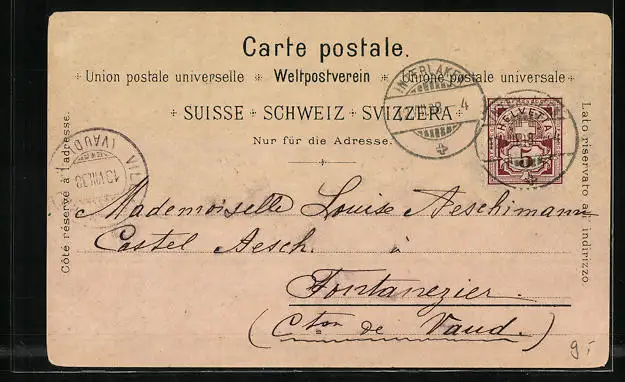 Carte postale.
Union postale universelle Weltpostverein Unione postale universale
SUISSE SCHWEIZ SVIZZERA
Nur für die Adresse.
Côté réservé à l'adresse.
Lato riservato all' indirizzo
INTERLAKEN
4
HELVETIA
5
(VAUD)
13.VIII.98
Mademoiselle Louise Aeschimann
Castel Aesch. à
Fontanezier.
(Cton de Vaud.)
9.-